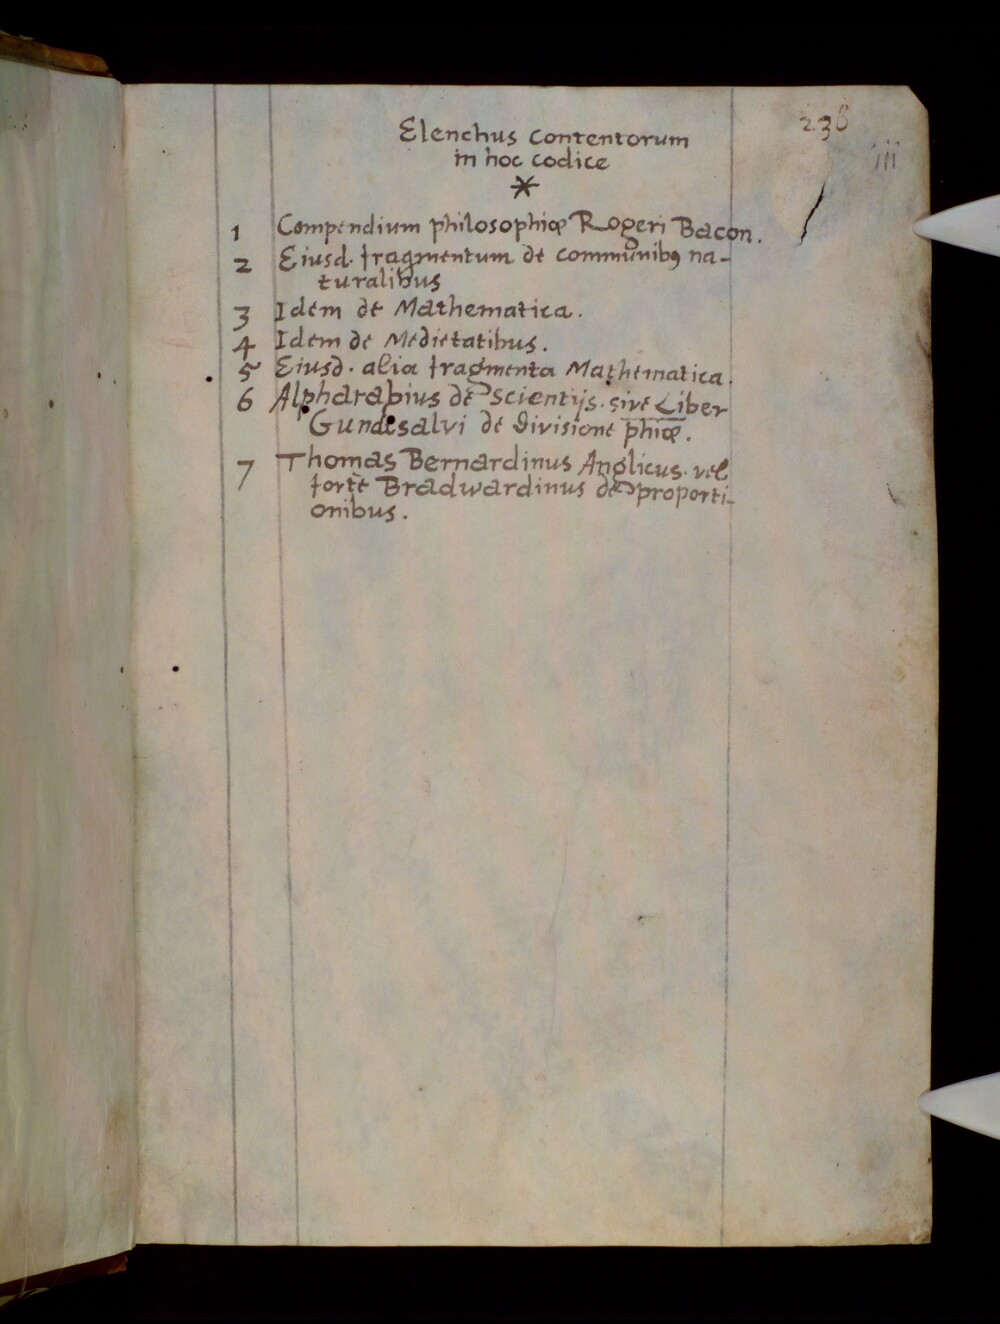 238
iii
Elenchus contentorum
in hoc codice
*
1 Compendium philosophiæ Rogeri Bacon.
2 Eiusd. fragmentum de communibꝰ na-
turalibus
3 Idem de Mathematica.
4 Idem de Medietatibus.
5 Eiusd. alia fragmenta Mathematica.
6 Alpharabius de scientijs. sive Liber
Gundesalvi de divisione phiæ.
7 Thomas Bernardinus Anglicus. vel
fortè Bradwardinus de proporti-
onibus.